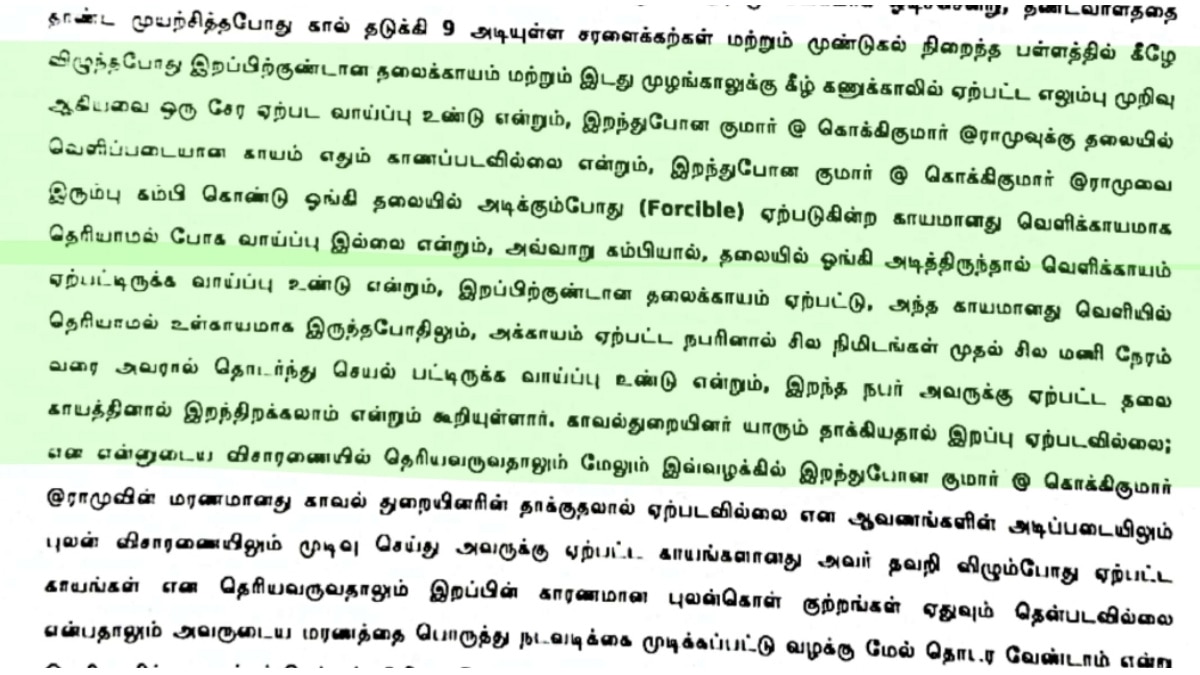 ஓடிச்சென்று, தண்டவாளத்தை
தாண்ட முயற்சித்தபோது கால் தடுக்கி 9 அடியுள்ள சரளைக்கற்கள் மற்றும் முண்டுகல் நிறைந்த பள்ளத்தில் கீழே
விழுந்தபோது இறப்பிற்குண்டான தலைக்காயம் மற்றும் இடது முழங்காலுக்கு கீழ் கணுக்காலில் ஏற்பட்ட எலும்பு முறிவு
ஆகியவை ஒரு சேர ஏற்பட வாய்ப்பு உண்டு என்றும், இறந்துபோன குமார் @ கொக்கிகுமார் @ராமுவுக்கு தலையில்
வெளிப்படையான காயம் எதும் காணப்படவில்லை என்றும், இறந்துபோன குமார் @ கொக்கிகுமார் @ராமுவை
இரும்பு கம்பி கொண்டு ஓங்கி தலையில் அடிக்கும்போது (Forcible) ஏற்படுகின்ற காயமானது வெளிக்காயமாக
தெரியாமல் போக வாய்ப்பு இல்லை என்றும், அவ்வாறு கம்பியால், தலையில் ஓங்கி அடித்திருந்தால் வெளிக்காயம்
ஏற்பட்டிருக்க வாய்ப்பு உண்டு என்றும், இறப்பிற்குண்டான தலைக்காயம் ஏற்பட்டு, அந்த காயமானது வெளியில்
தெரியாமல் உள்காயமாக இருந்தபோதிலும், அக்காயம் ஏற்பட்ட நபரினால் சில நிமிடங்கள் முதல் சில மணி நேரம்
வரை அவரால் தொடர்ந்து செயல் பட்டிருக்க வாய்ப்பு உண்டு என்றும், இறந்த நபர் அவருக்கு ஏற்பட்ட தலை
காயத்தினால் இறந்திறக்கலாம் என்றும் கூறியுள்ளார். காவல்துறையினர் யாரும் தாக்கியதால் இறப்பு ஏற்படவில்லை;
என என்னுடைய விசாரணையில் தெரியவருவதாலும் மேலும் இவ்வழக்கில் இறந்துபோன குமார் @ கொக்கிகுமார்
@ராமுவின் மரணமானது காவல் துறையினரின் தாக்குதலால் ஏற்படவில்லை என ஆவணங்களின் அடிப்படையிலும்
புலன் விசாரணையிலும் முடிவு செய்து அவருக்கு ஏற்பட்ட காயங்களானது அவர் தவறி விழும்போது ஏற்பட்ட
காயங்கள் என தெரியவருவதாலும் இறப்பின் காரணமான புலன்கொள் குற்றங்கள் ஏதுவும் தென்படவில்லை
என்பதாலும் அவருடைய மரணத்தை பொருத்து நடவடிக்கை முடிக்கப்பட்டு வழக்கு மேல் தொடர வேண்டாம் என்று